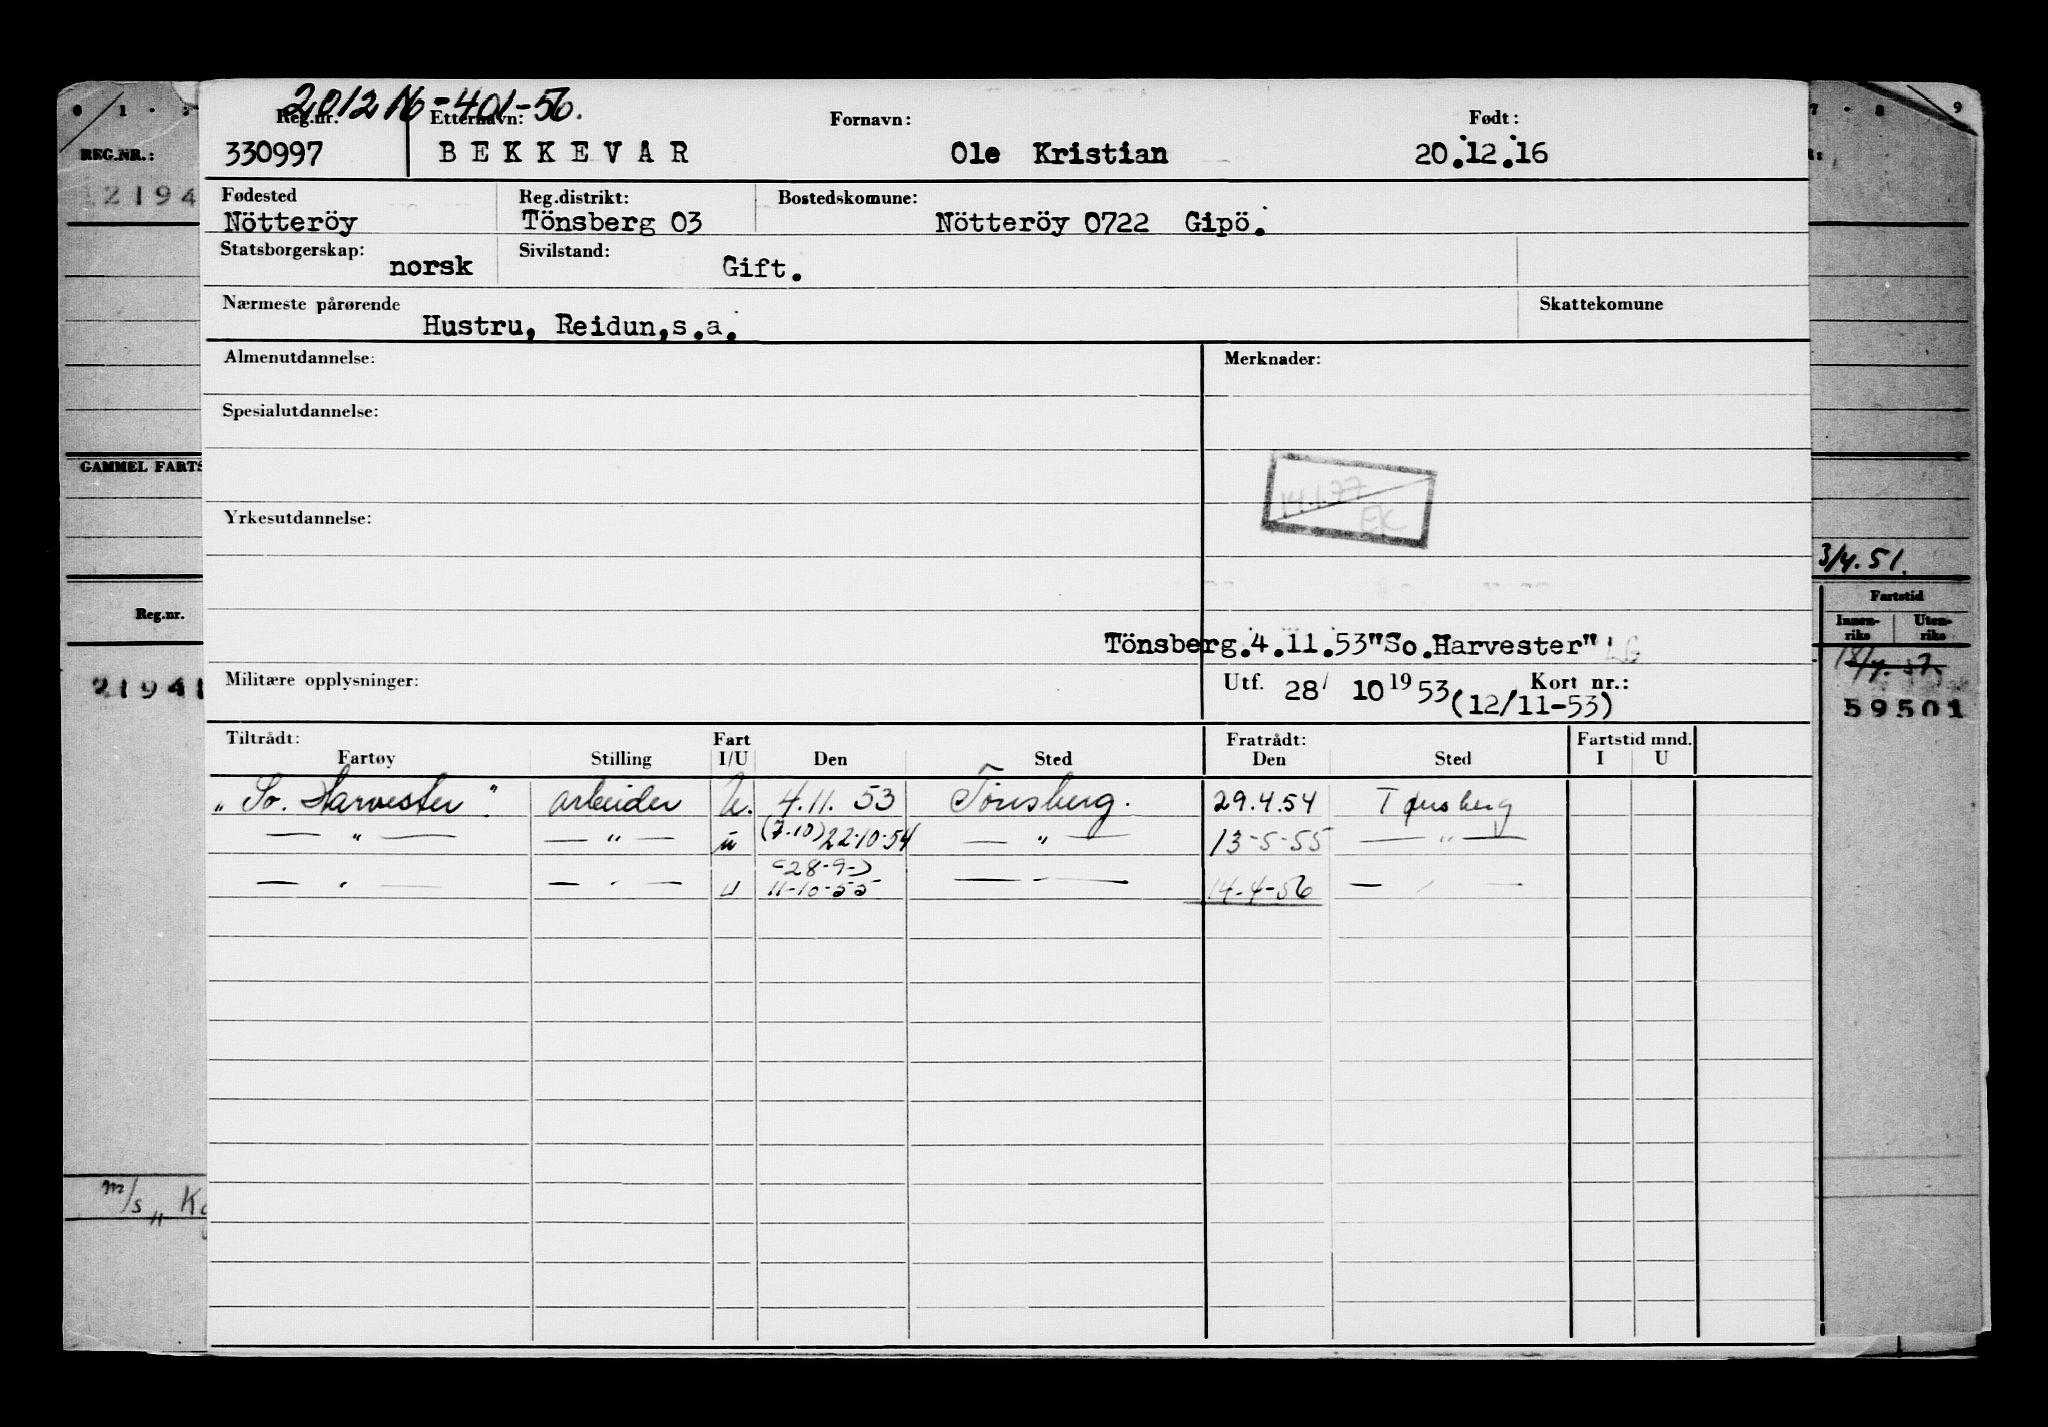 201216-401-56.
Reg.nr. Etternavn: Fornavn: Født:
330997 BEKKEVAR Ole Kristian 20.12.16
Fødested Reg.distrikt: Bostedskomune:
Nötteröy Tönsberg 03 Nötteröy 0722 Gipö.
Statsborgerskap: norsk Sivilstand: Gift.
Nærmeste pårørende Skattekomune
Hustru, Reidun,s.a.
Almenutdannelse: Merknader:
Spesialutdannelse:
14.1.77
EK
Yrkesutdannelse:
Tönsberg.4.11.53"So.Harvester" LG
Militære opplysninger: Utf. 28/ 10 19 53 Kort nr.:
(12/11-53)
Tiltrådt: Fart Fratrådt: Fartstid mnd.
Fartøy Stilling I/U Den Sted Den Sted I U
"So. Harvester". arbeider U. 4.11. 53 Tönsberg. 29.4.54 Tønsberg
— " — — " — u (7-10) 22-10-54 — " — 13-5-55 — " —
(28-9-)
— " — — " — u 11-10-55 — " — 14-4-56 — " —
0 1
REG.NR.:
2194
GAMMEL FARTS
Reg.nr.
21941
m/s "K
7 - 8 9
3/4.51.
Fartstid
Innen-riks Uten-riks
59501